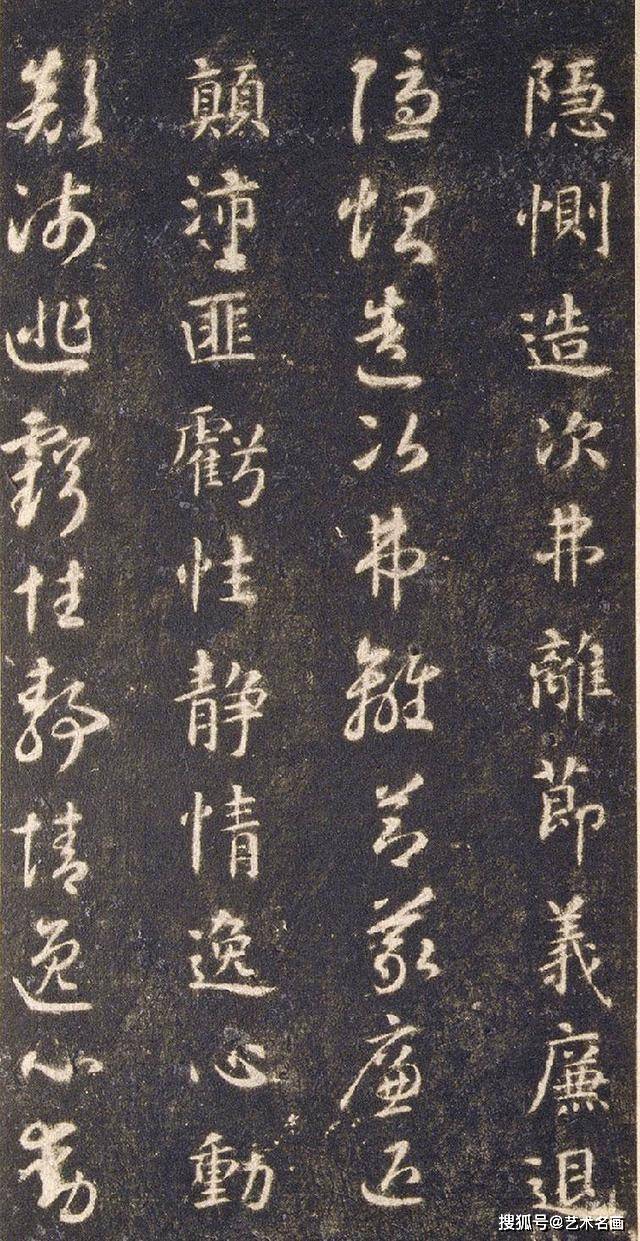 隱惻造次弗離節義廉退
隱惻造次弗離節義廉退
顛沛匪虧性静情逸心動
顛沛匪虧性静情逸心動
搜狐号@艺术名画